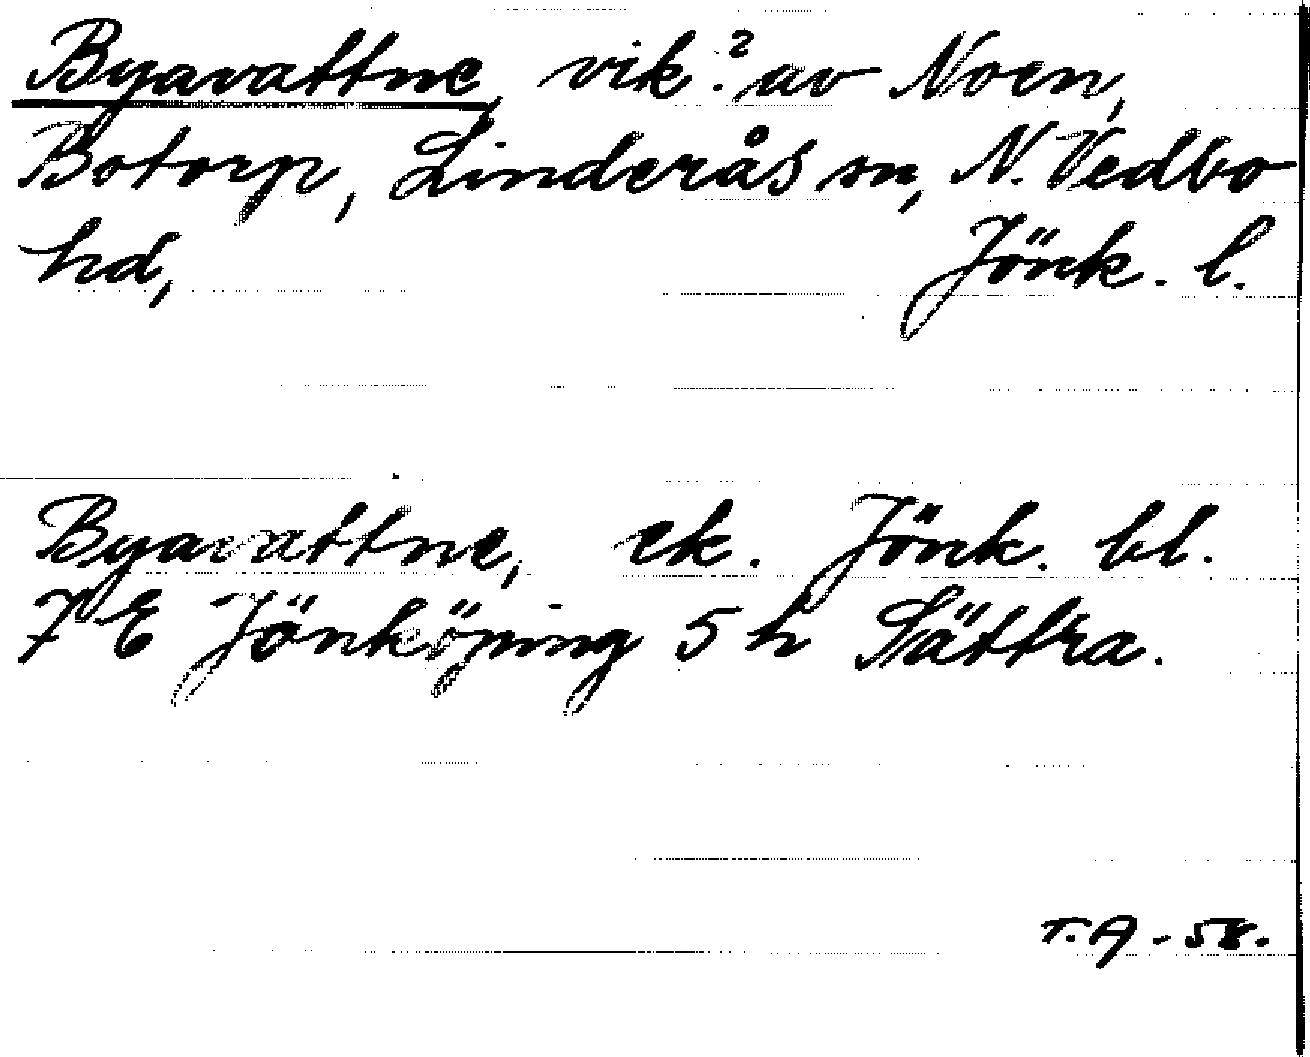 Byavattne, vik? av Noen,
Botorp, Linderås sn, N. Vedbo
hd, Jönk. l.
Byavattne, ek. Jönk. bl.
7 E Jönköping 5 h Sättra.
T.A -58.